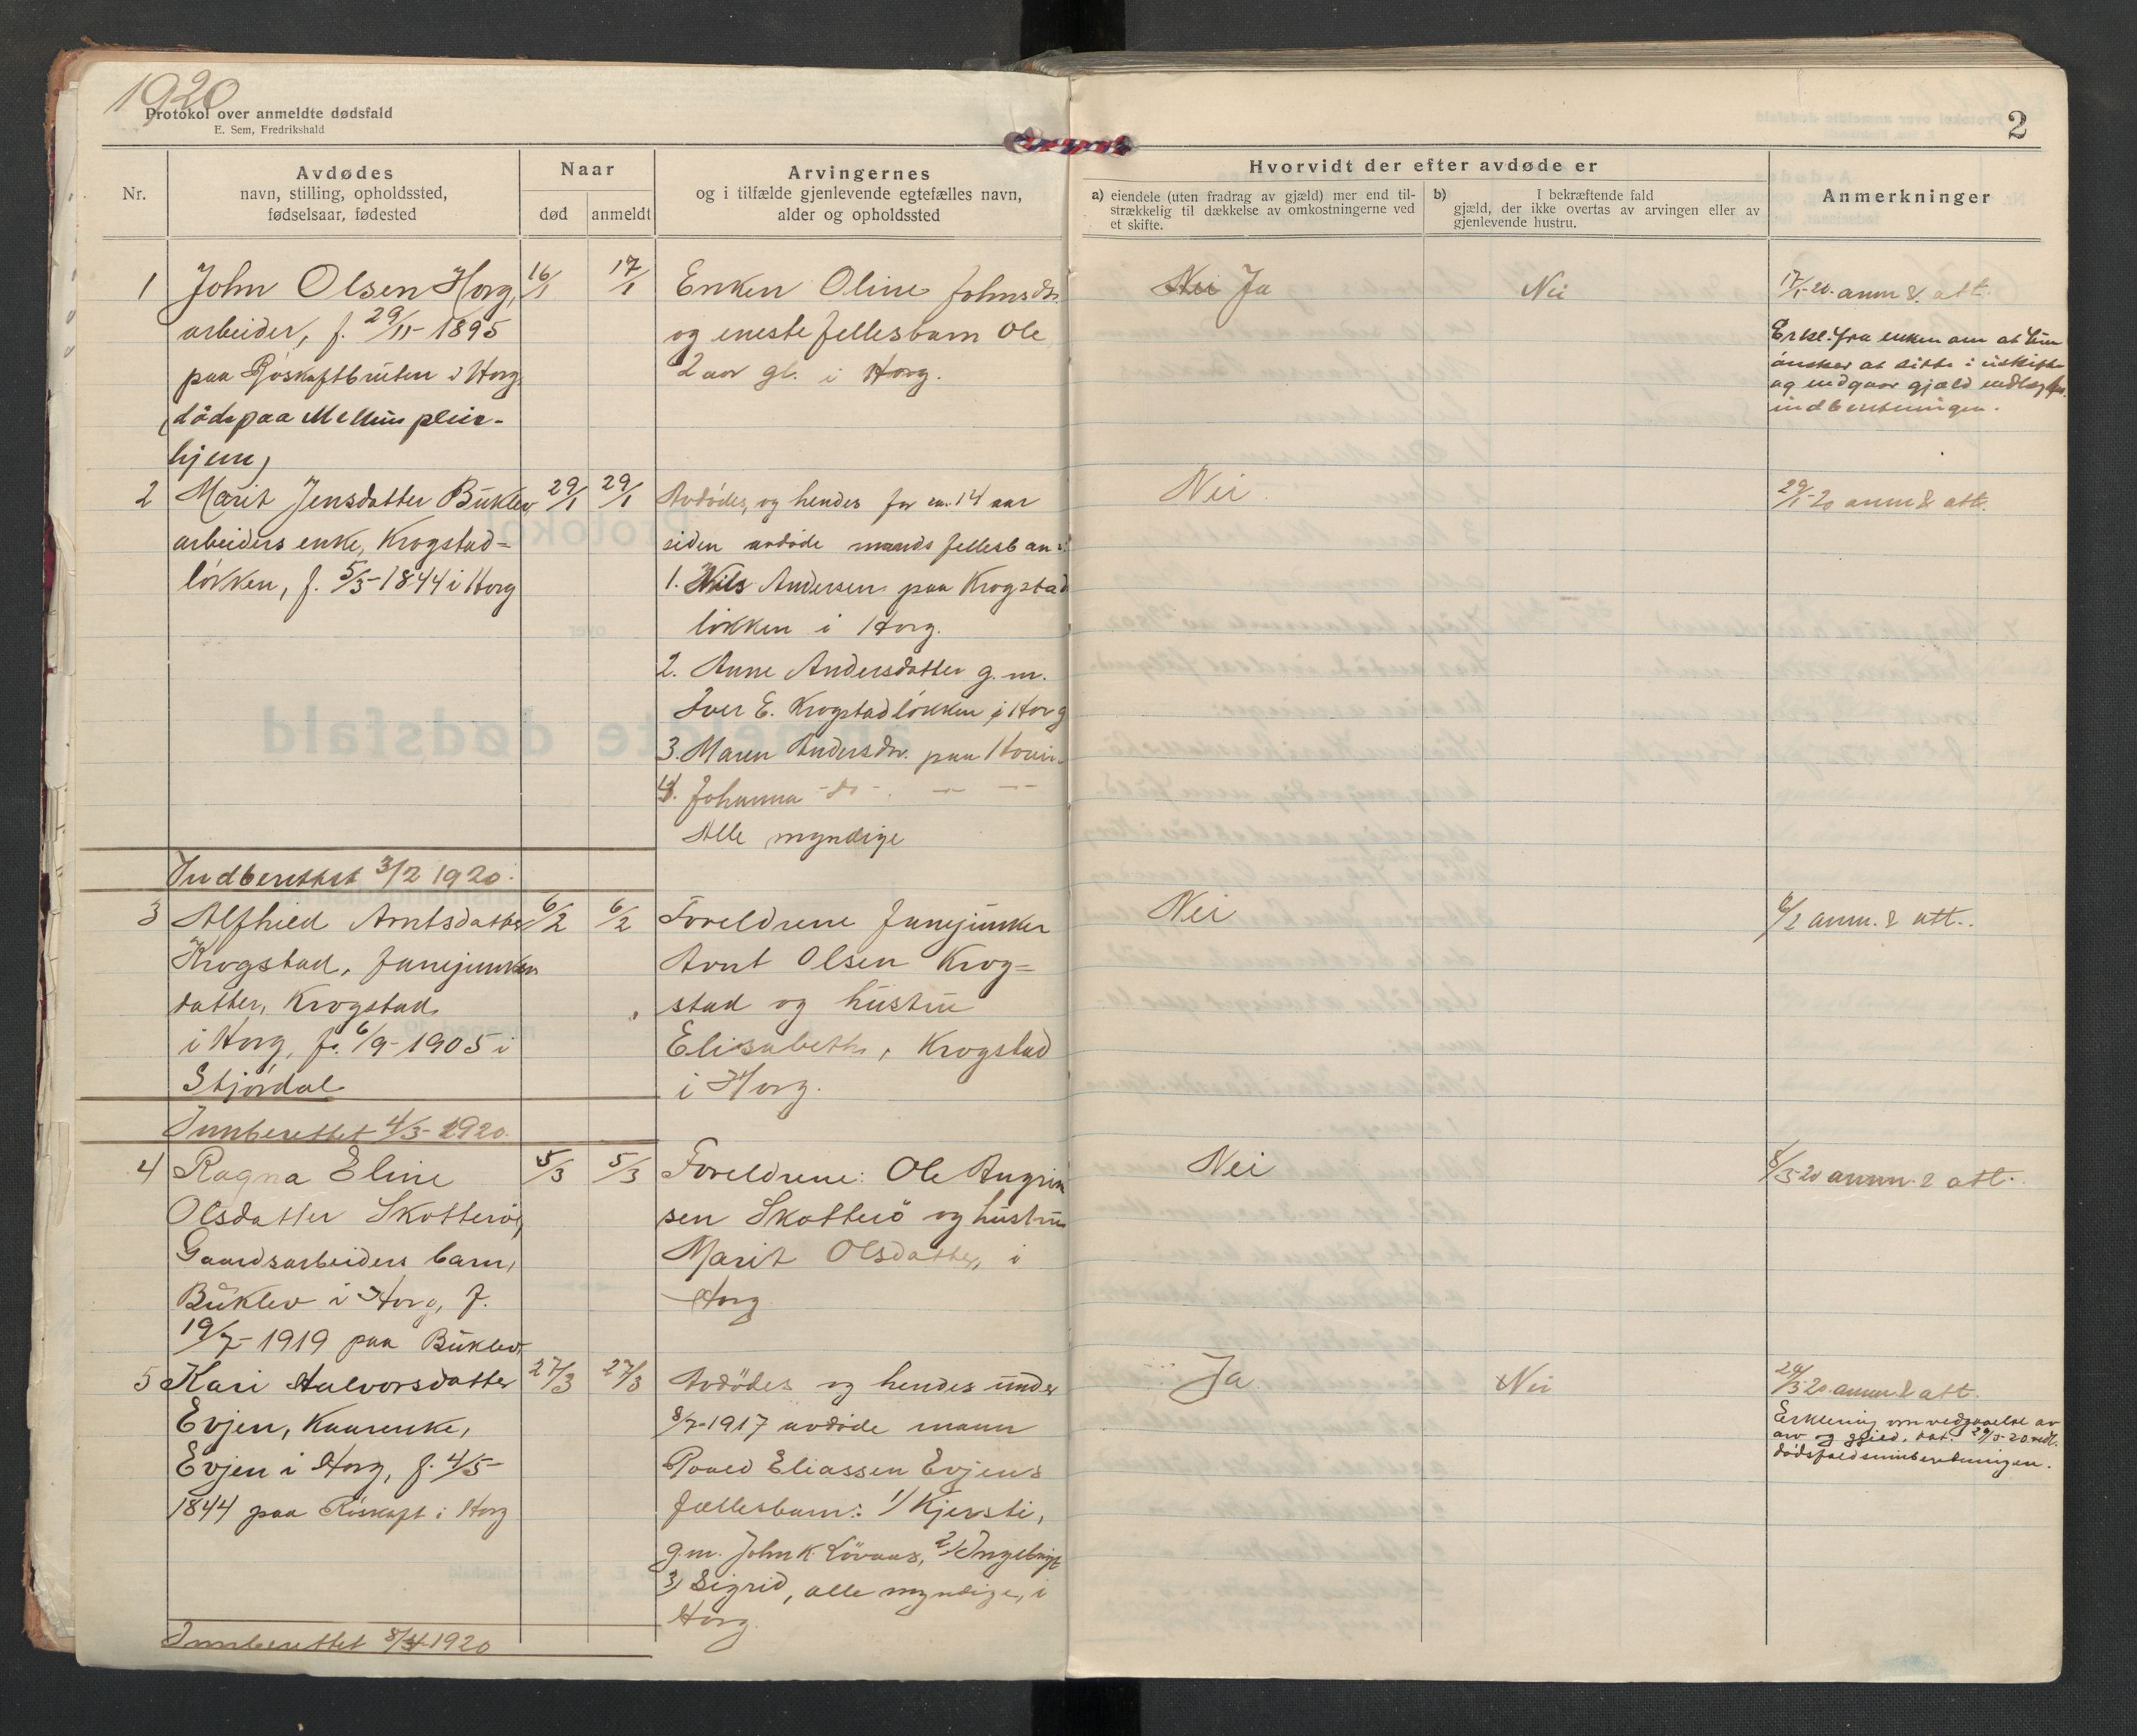 1920
Protokol over anmeldte dødsfald
E. Sem, Fredrikshald
2
Nr.
Avdødes
navn, stilling, opholdssted,
fødselsaar, fødested
Naar
død
anmeldt
Arvingernes
og i tilfælde gjenlevende egtefælles navn,
alder og opholdssted
Hvorvidt der efter avdøde er
a) eiendele (uten fradrag av gjæld) mer end til-
strækkelig til dækkelse av omkostningerne ved
et skifte.
b) I bekræftende fald
gjæld, der ikke overtas av arvingen eller av
gjenlevende hustru.
Anmerkninger
1
John Olsen Horg,
arbeider, f. 29/11-1895
paa Røskaftbruten i Horg
(døde paa Mellus pleie-
hjem)
16/1
17/1
Enken Oline Johnsdtr.
og eneste fellesbarn Ole
2 aar gl. i Horg.
Nei Ja
Nei
17/1-20. anm & att.
Erkl. fra enken om at hun
ønsker at sitte i uskifte
og vedgaar gjæld vedlagt
indberetningen.
2
Marit Jensdatter Buklev
arbeiders enke, Krogstad-
løkken, f. 5/3-1844 i Horg
29/1
29/1
Avdødes, og hendes for ca. 14 aar
siden avdøde mands fellesbarn:
1. Nils Andersen paa Krogstad
løkken i Horg.
2. Anne Andersdatter g. m.
Iver E. Krogstadløkken i Horg
3. Maren Andersdtr. paa Hovin.
4. Johanna -do-. — —
Alle myndige
Nei.
29/1-20 anm & att.
Indberettet 3/2 1920.
3
Alfhild Arntsdatter
Krogstad, Junejunker
datter, Krogstad
i Horg, f. 6/9-1905 i
Stjørdal
6/2
6/2
Foreldrene Junejunker
Arnt Olsen Krog-
stad og hustru
Elisabeth, Krogstad
i Horg.
Nei
6/2 anm. & att.
Innberettet 4/3-1920.
4
Ragna Eline
Olsdatter Skotterø,
Gaardsarbeiders barn,
Buklev i Horg, f.
19/7-1919 paa Buklev.
5/3
5/3
Foreldrene: Ole Angrim
sen Skotterö og hustru
Marit Olsdatter, i
Horg
Nei
8/3-20 anm. & att.
5
Kari Halvorsdatter
Evjen, Kaarenke,
Evjen i Horg, f. 4/5-
1844 paa Röskaft i Horg
27/3
27/3
Avdödes og hendes under
8/7-1917 avdøde mann
Paael Eliassen Evjens
fællesbarn: 1/ Kjersti,
g.m. John K. Løvaas, 2/ Ingebrigt
3) Sigrid, alle myndige, i
Horg.
Ja
Nei
29/3-20. anm. & att.
Erklering om vedgaaelse av
arv og gjeld, dat. 29/3-20 vedl.
dødsfaldsinnberetningen.
Innberettet 8/4-1920